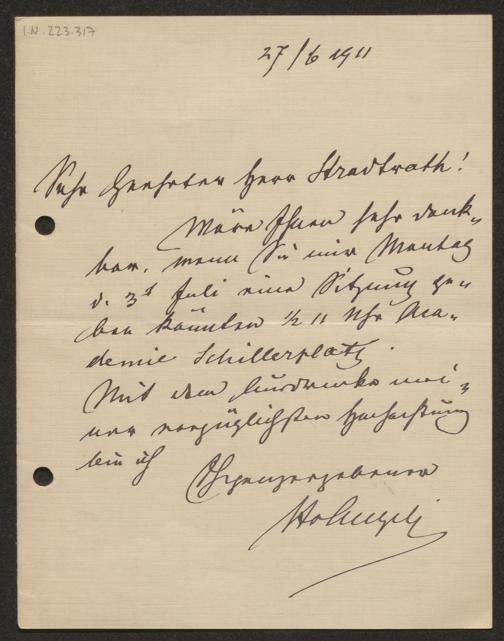 I.N. 223.317
27/6 1911
Sehr Geehrter Herr Stadtrath!
Wäre Ihnen sehr dank-
bar, wenn Sie mir Montag
d. 3t Juli eine Sitzung ge-
ben könnten ½ 11 Uhr Aca-
demie Schillerplatz.
Mit dem Ausdrucke mei-
ner vorzüglichsten Hochachtung
bin ich
Ihr ganz ergebener